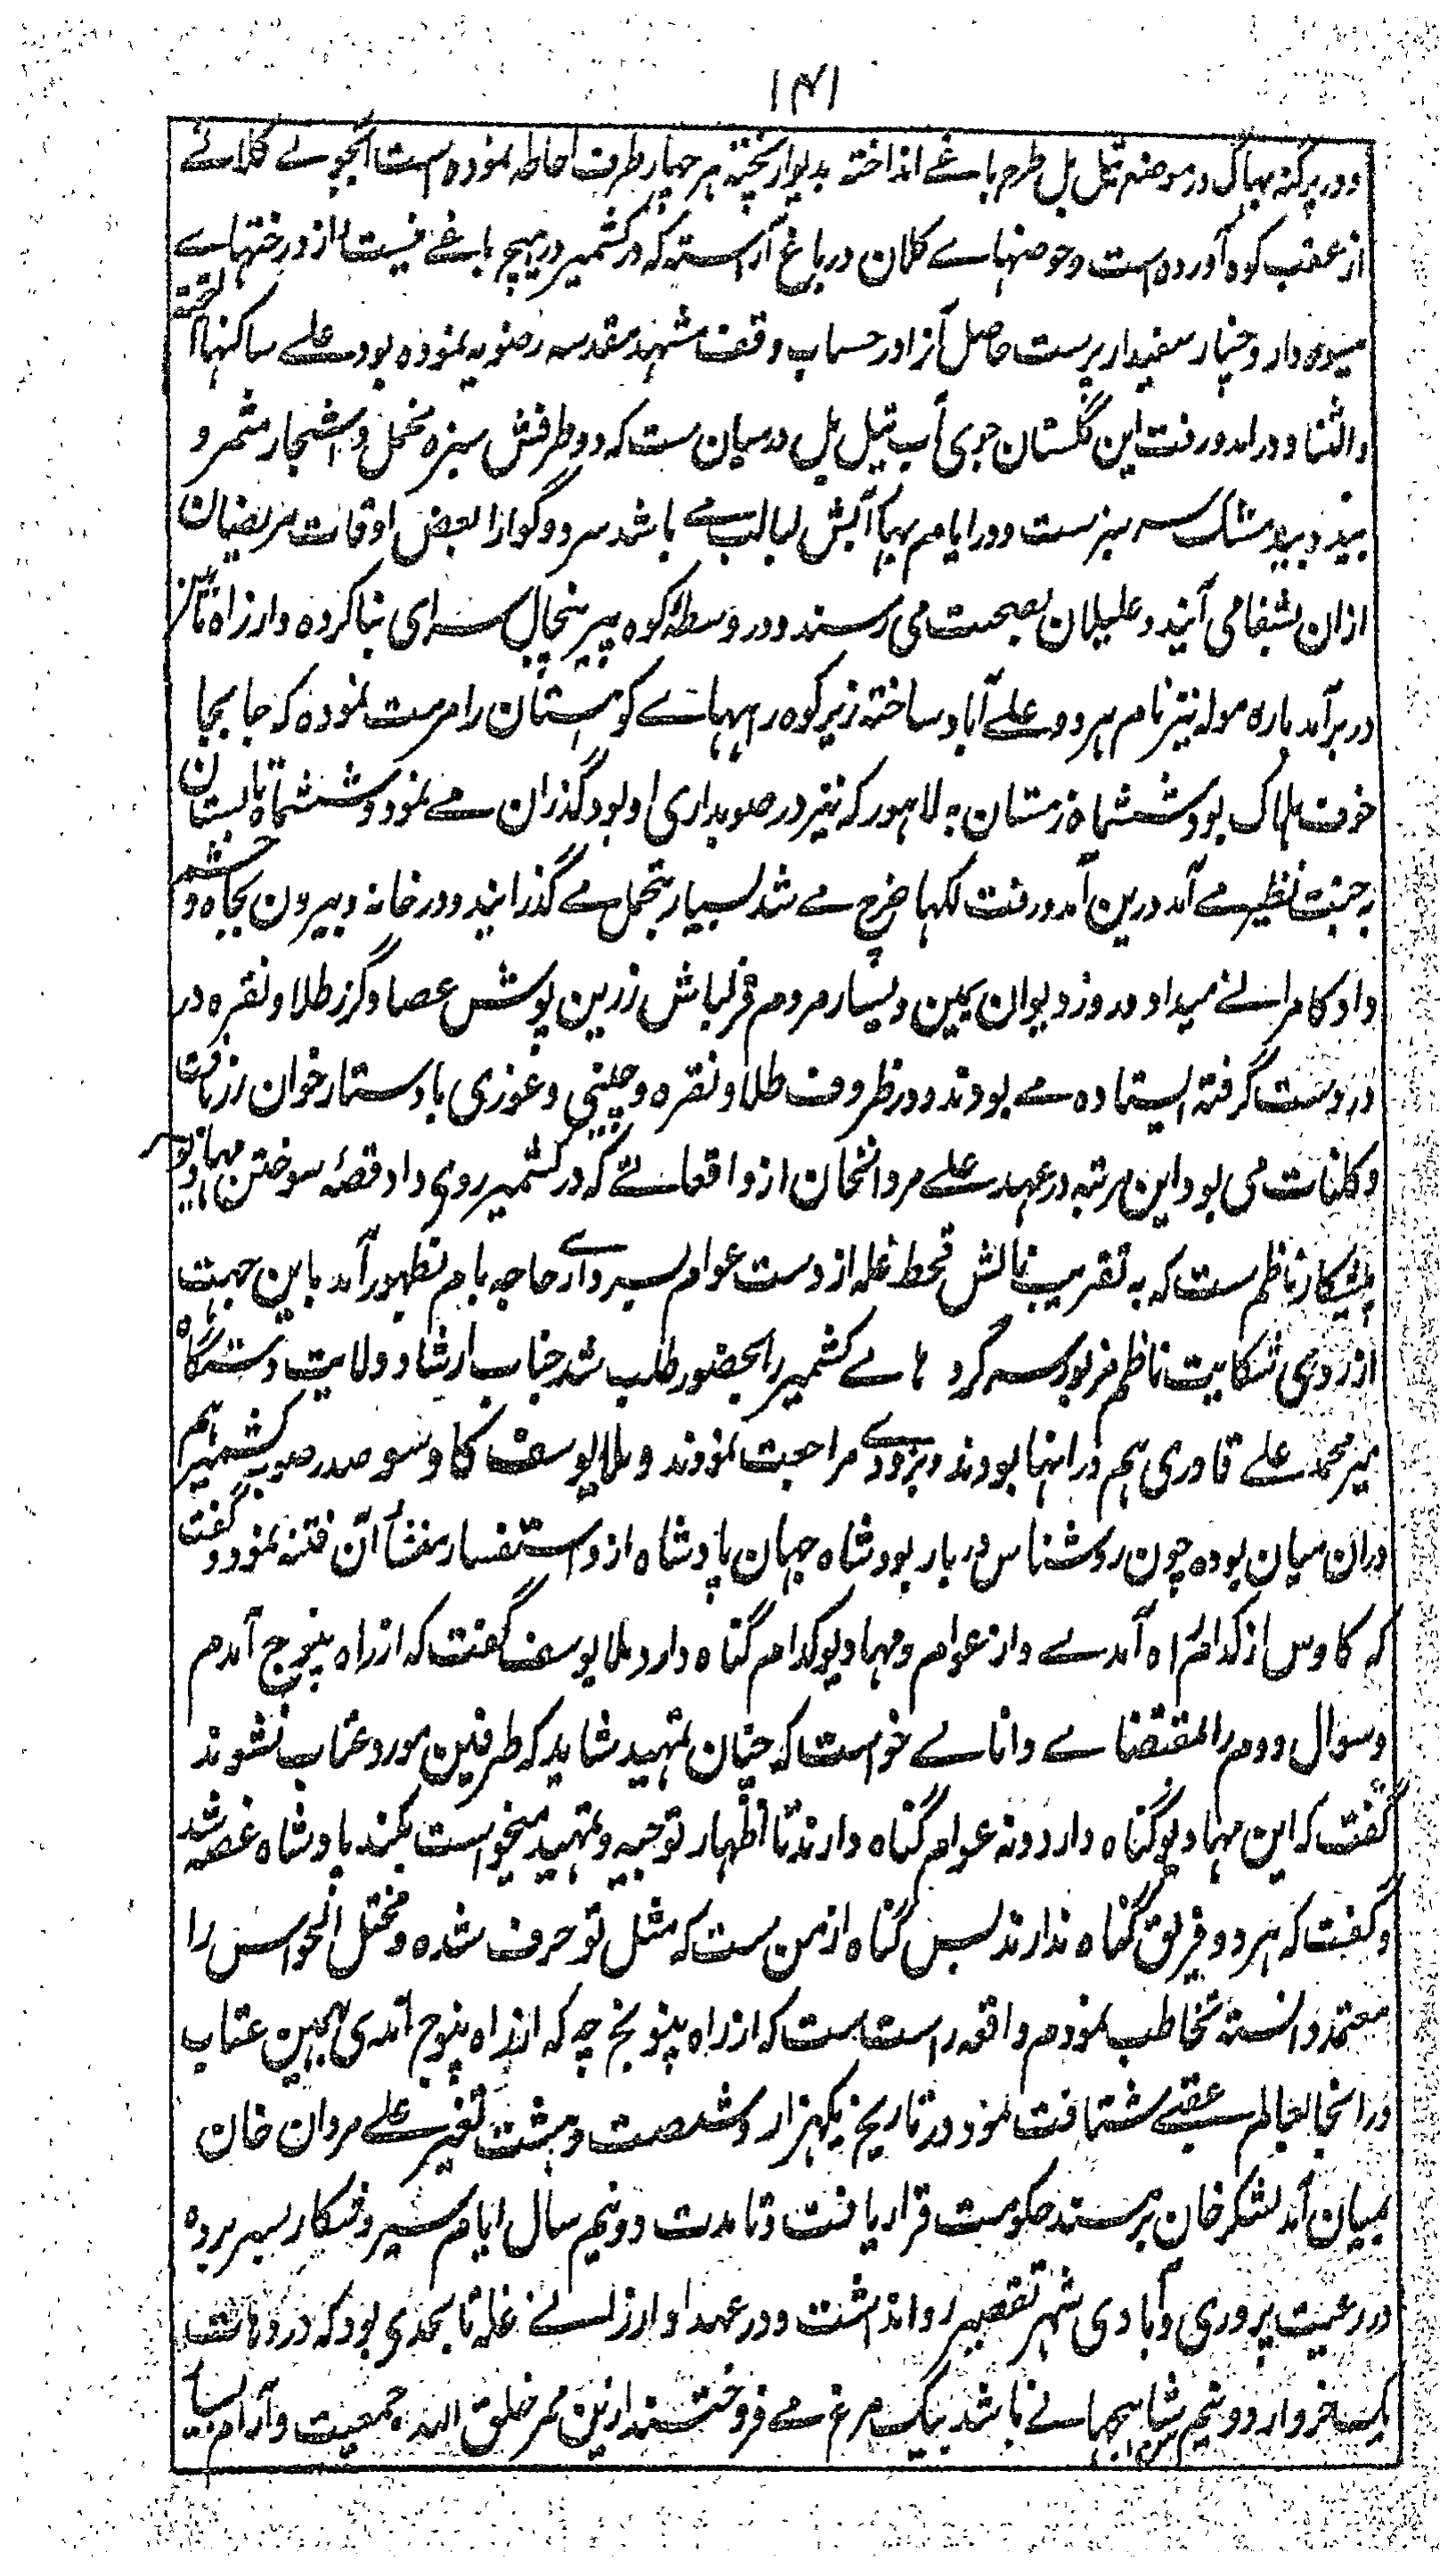 ۱۴۱
و در پرگنه بهاگ در موضع تیل بل طرح باغے انداخته بدیوار پخته هر چهار طرف احاطه نموده است آبجوے کلانے
از عقب کوه آورده است و حوضهاے کلان در باغ آراسته که در کشمیر در هیچ باغے نیست از درختهاے
میوه دار و چنار سفیدار پرست حاصل آنرا در حساب وقف مشهد مقدسه رضویه نموده بود علے ساکنها التحیة
والثنا و در آمد و رفت این گلستان جوی آب تیل بل درمیان ست که دو طرفش سبزه مخمل و اشجار مثمر و
بید و بید مشک سر سبزست و در ایام بهار آبش لبالب مے باشد سرد و گوارا بعض اوقات مریضان
ازان بشفا می آیند و علیلان بصحت می رسند و در وسط کوه پیر پنجال سرای بنا کرده و از راه
در برآمد باره موله نیز نام هر دو علے آباد ساخته زیر کوه رهہاے کوهستان را مرمت نموده که جا بجا
خوف هلاک بود ششماه زمستان به لاهور که نیز در صوبداری او بود گذران مے نمود و ششماه تابستان
به جنت نظیر مے آمد درین آمد و رفت لکها خرچ مے شد بسیار بتجمل مے گذرانید و در خانه و بیرون بجاه و حشم
داد کامرانے میداد و در روز دیوان یمین و یسار مردم قزلباش زرین پوش عصا و گرز طلا و نقره در
در دست گرفته ایستاده مے بودند و در ظروف طلا و نقره و چینی و غوری با دستار خوان زربافت
و کلنات می بود این مرتبه در عهد علے مردانخان از واقعاتے که در کشمیر روی داد قصهٔ سوختن مهادیو
پیشکار ناظم ست که به تقریب نالش قحط غله از دست عوام بسرداری حاجه بام بظهور آمد باین جهت
از روی شکایت ناظم مزبور سرگرد هاے کشمیر را بحضور طلب شد جناب ارشاد و ولایت دستگاه
میر محمد علے قادری هم در انها بودند و بزودے مراجعت نمودند و ملا یوسف کاوسو صدر صوبه کشمیر هم
دران میان بوده چون روشناس دربار بود شاه جهان پادشاه از و استفسار منشأ آن فتنه نمود و گفت
که کاوس از کدام راه آمدے و از عوام و مهادیو کدام گناه دارد ملا یوسف گفت که از راه پنوج آمدم
و سوال دوم را بمقتضاے دانائے خواست که چنان تمهید شاید که طرفین مورد عتاب نشوند
گفت که این مهادیو گناه دارد و نه عوام گناه دارند تا اظهار توجیه و تمهید میخواست بکند پادشاه غصه شد
و گفت که هر دو فریق گناه ندارند بس گناه از من ست که مثل تو حرف شده و مختل الحواس را
معتمد دانسته مخاطب نمودم واقعه راست است که از راه پنوج چه که از راه پنوج آمدی بهمین عتاب
در انجا بعالم عقبے شتافت نمود در تاریخ یکهزار و شصت و هشت تغیر علے مردان خان
بمیان آمد لشکر خان بر مسند حکومت قرار یافت و تا مدت دو نیم سال ایام بسیر و شکار بسر برده
در رعیت پروری و آبادی شهر تقصیر روا نداشت و در عهد او ارزانے غله تا بحدی بود که در دهات
یک خروار دو نیم من شاهجهانے باشد بیک مرغ مے فروختند ازین ممر خلق الله جمعیت و آرام بسیار